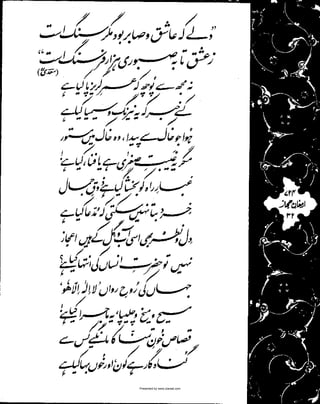 ”دلے کہ عاشق و صابر بود مگر سنگ است
ز عشق تا بہ صبوری ہزار فرسنگ است“
(سعدیؒ)
نہ مجھ سے پوچھ کہ عمرِ گریز پا کیا ہے
کسے خبر کہ یہ نیرنگ و سیمیا کیا ہے
ہوا جو خاک سے پیدا، وہ خاک میں مستور
مگر یہ غیبتِ صغریٰ ہے یا فنا، کیا ہے!
غبارِ راہ کو بخشا گیا ہے ذوقِ جمال
خرد بتا نہیں سکتی کہ مدعا کیا ہے
دل و نظر بھی اسی آب و گل کے ہیں اعجاز
نہیں تو حضرتِ انساں کی انتہا کیا ہے؟
جہاں کی روحِ رواں ’لا الٰہ الّا ھُو‘
مسیح و میخ و چلیپا، یہ ماجرا کیا ہے!
قصاصِ خونِ تمنا کا مانگیے کس سے
گناہ گار ہے کون، اور خوں بہا کیا ہے
ارمغانِ حجاز
۳۲